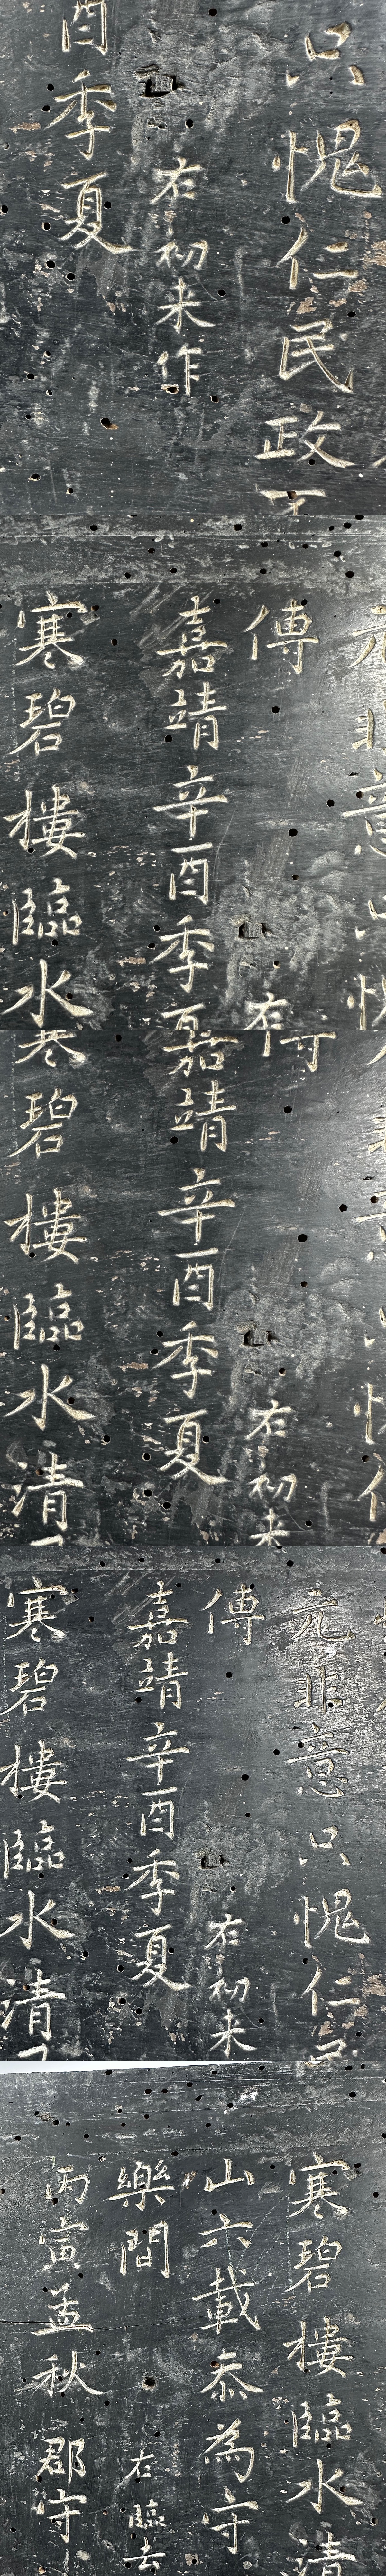 只愧仁民政
右初来作
酉季夏
意
傳
右
嘉靖辛酉季夏
寒碧樓臨水
右初来
嘉靖辛酉季夏
碧樓臨水清
元非意只愧仁民
傳
右初来
嘉靖辛酉季夏
寒碧樓臨水清
寒碧樓臨水清
山六載忝為守
樂間
右臨去
丙寅孟秋郡守